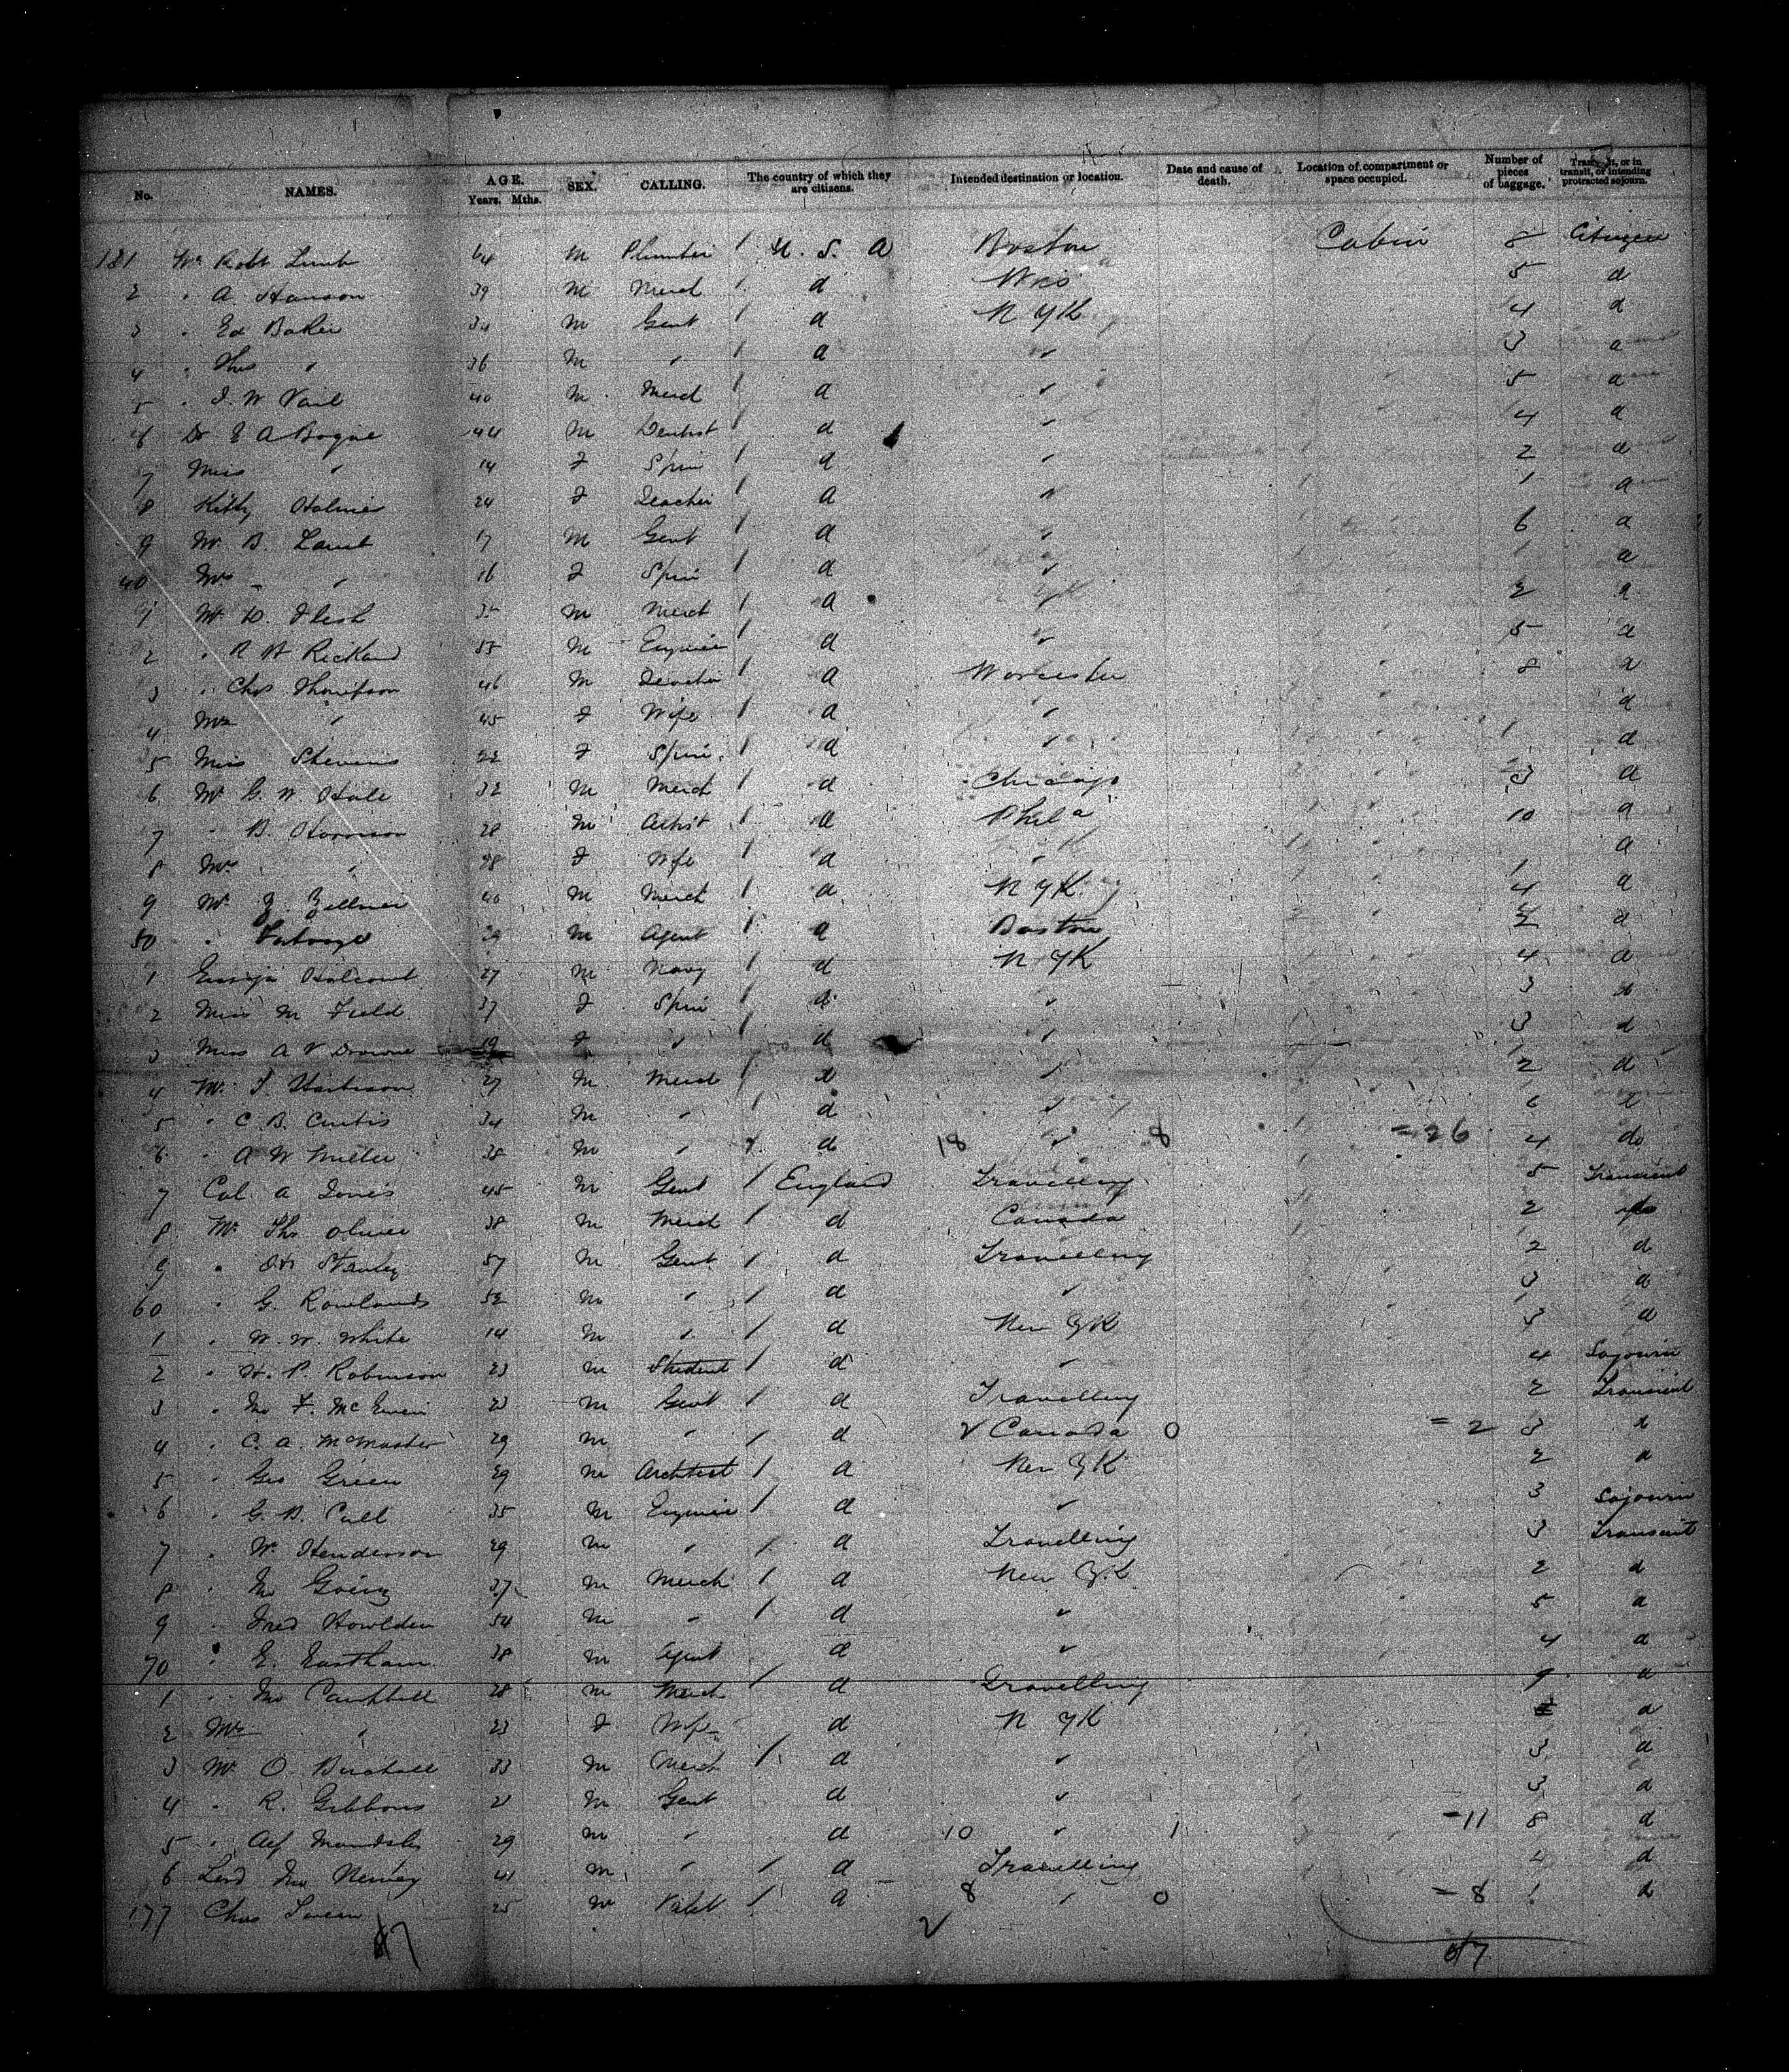 No. NAMES. AGE. Years. Mths. SEX. CALLING. The country of which they are citizens. Intended destination or location. Date and cause of death. Location of compartment or space occupied. Number of pieces of baggage. in transit, or intending protracted sojourn.
131 Mr Robt Lumb 64 M Plumber / U. S. A Boston Cabin 8 Citizen
2 " A Hanson 39 M Merch / d 5 d
3 " Ed Baker 34 M Gent / d N YK 4 d
4 " Ths " 36 M " / d " 3 d
5 " J. W Vail 40 M Merch / d " 5 d
6 Dr E A Bogue 44 M Dentist / d " 4 d
7 Miss " 14 F Spin / d " 2 d
8 Kitty Holmes 24 F Teacher / d " 1 d
9 Mr B. Lamb 17 M Gent / d " 6 d
40 " 16 F Spin / d " 1 d
1 Mr D. Flesh 35 M Merch / d " 2 d
2 " R H 55 M Enginee / d " 5 d
3 " Chs Thompson 46 M Teacher / d Worcester 8 d
4 Mrs " 45 F Wife / d " d
5 Miss Stevens 22 F Spin. / d " 1 d
6 Mr G. W Hale 32 M Merch / d Chicago 3 d
7 " B. Harrison 28 M Artist / d Phila 10 d
8 Mrs " 28 F Wife / d " 1 d
9 Mr Z. Zellner 40 M Merch / d N YK 4 d
50 " 39 M Agent / d Boston 2 d
1 Ensign Holcomb 27 M Navy / d N YK 4 d
2 Miss M Field 37 F Spin / d " 3 d
3 Miss A V Browne 19 F " / d " 3 d
4 Mr J. Harbison 27 M Merch / d " 2 d
5 " C. B. Curtis 34 M " / d " 6 d
6 " A W Miller 38 M " / d 18 " 8 = 26 4 do
7 Col A Jones 45 M Gent / England Travelling 5 Transient
8 Mr Ths Oliver 38 M Merch / d Canada 2 do
9 " Stanley 57 M Gent / d Travelling 2 d
60 " G. Rowlands 52 M " / d " 3 d
1 " W. W. White 14 M " / d New YK 3 d
2 " H. P. Robinson 23 M Student / d " 4 Sojourn
3 " Jno F. McEwen 23 M Gent / d Travelling 2 Transient
4 " C. A. McMaster 29 M " / d V Canada 0 = 2 3 d
5 " Geo Green 29 M Architect / d New YK 2 d
6 " G. B. Cull 35 M Enginee / d " 3 Sojourn
7 " W. Henderson 29 M " / d Travelling 3 Transient
8 " Jno 37 M Merch / d New YK 2 d
9 " Fred Howlden 54 M " / d " 5 d
70 " E. Eastham 38 M Agent d " 4 d
1 " Jno Campbell 28 M Merch / d Travelling 9 d
2 Mrs " 23 F Wife d N YK d
3 Mr O. Birchall 33 M Merch / d " 3 d
4 " R. Gibbons M Gent d " 3 d
5 " Alf 29 M " d 10 " 1 = 11 8 d
6 41 M " / d Travelling 4 d
177 Chas 25 M / d 8 " 0 = 8 1 d
V